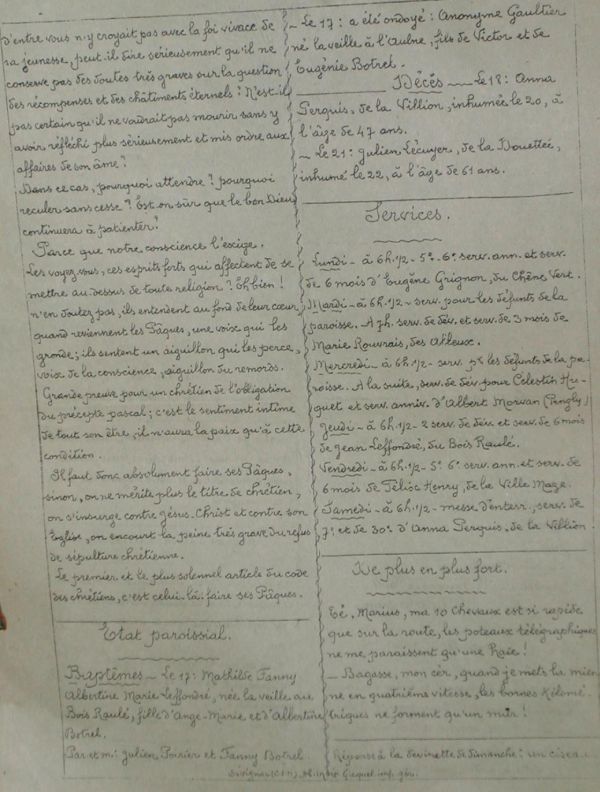 d'entre vous n'y croyait pas avec la foi vivace de
sa jeunesse, peut-il dire sérieusement qu'il ne
conserve pas des doutes très graves sur la question
des récompenses et des châtiments éternels? N'est-il
pas certain qu'il ne voudrait pas mourir sans y
avoir réfléchi plus sérieusement et mis ordre aux
affaires de son âme?
Dans ce cas, pourquoi attendre? pourquoi
reculer sans cesse? Est-on sûr que le bon Dieu
continuera à patienter?
Parce que notre conscience l'exige.
Les voyez-vous, ces esprits forts qui affectent de se
mettre au dessus de toute religion? Eh bien!
n'en doutez pas, ils entendent au fond de leur cœur,
quand reviennent les Pâques, une voix qui les
gronde; ils sentent un aiguillon qui les perce,
voix de la conscience, aiguillon du remords.
Grande preuve pour un chrétien de l'obligation
du précepte pascal; c'est le sentiment intime
de tout son être, il n'aura la paix qu'à cette
condition.
Il faut donc absolument faire ses Pâques,
sinon, on ne mérite plus le titre de chrétien,
on s'insurge contre Jésus-Christ et contre son
Eglise, on encourt la peine très grave du refus
de sépulture chrétienne.
Le premier et le plus solennel article du code
des chrétiens, c'est celui-là: faire ses Pâques.
Etat paroissial.
Baptêmes - Le 17: Mathilde Fanny
Albertine Marie Leffondré, née la veille au
Bois Raulé, fille d'Ange-Marie et d'Albertine
Botrel.
Par. et m: Julien Poirier et Fanny Botrel
- Le 17: a été ondoyé: Anonyme Gaultier
né la veille à l'Aulne, fils de Victor et de
Eugénie Botrel.
Décés - Le 18: Anna
Serguis, de la Villion, inhumée le 20, à
l'âge de 47 ans.
- Le 21: Julien Lécuyer, de la Douettée,
inhumé le 22, à l'âge de 61 ans.
Services.
Lundi - à 6h.1/2 - 5e. 6e. serv. ann. et serv.
de 6 mois d'Eugène Grignon, du Chêne Vert.
Mardi - à 6h.1/2 - serv. pour les défunts de la
paroisse. A 7h. serv. de dév. et serv. de 3 mois de
Marie Rouvrais, des Alleux.
Mercredi - à 6h.1/2 - serv. pr. les défunts de la pa-
roisse. A la suite, serv. de dév. pour Célestin Hu-
guet et serv. anniv. d'Albert Morvan (Pengly)
Jeudi - à 6h.1/2 - 2 serv. de dév. et serv. de 6 mois
de Jean Leffondré, du Bois Raulé.
Vendredi - à 6h.1/2 - 5e. 6e. serv. ann. et serv. de
6 mois de Félix Henry, de la Ville Maze.
Samedi - à 6h.1/2 - messe d'enterr., serv. de
7e. et de 30e. d'Anna Serguis, de la Villion!
De plus en plus fort.
Té, Marius, ma 10 Chevaux est si rapide
que sur la route, les poteaux télégraphiques
ne me paraissent qu'une Raie!
- Bagasse, mon cer, quand je mets la mien
ne en quatrième vitesse, les bornes kilomé-
triques ne forment qu'un mur!
Réponse à la devinette de dimanche: un cisea
Sévignac (C.d.N.), Gicquel imp. gér.